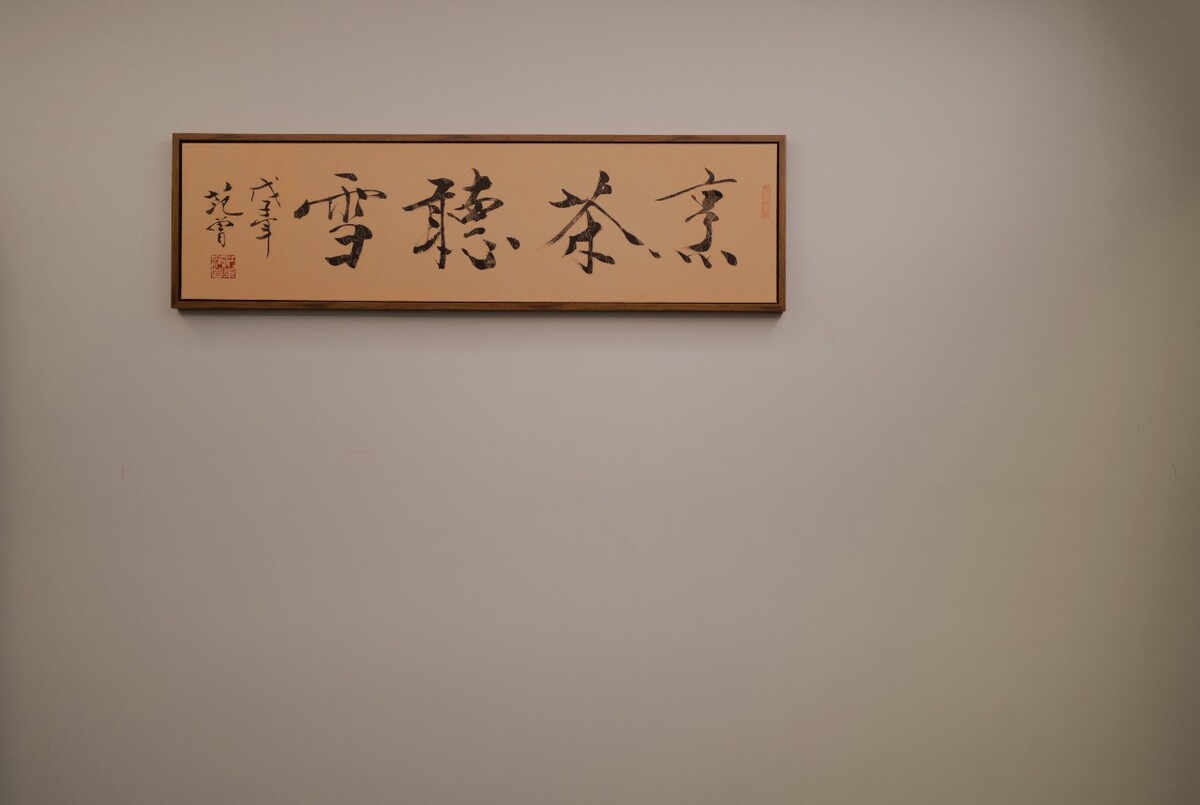 烹茶聽雪
戊子年
范曾